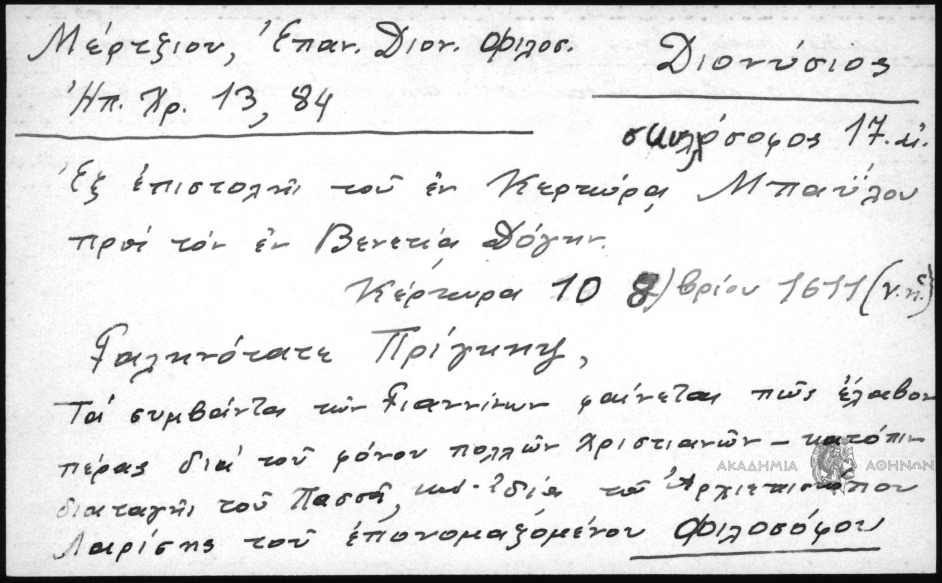 Μέρτζιου, Ἐπαν. Διον. Φιλοσ.
Διονύσιος
Ἠπ. Χρ. 13, 84
σκυλόσοφος 17. αἰ.
Ἐξ ἐπιστολῆς τοῦ ἐν Κερκύρᾳ Μπαΰλου
πρός τόν ἐν Βενετίᾳ Δόγην.
Κέρκυρα 10 8)βρίου 1611 (ν.η.)
Γαληνότατε Πρίγκηψ,
Τά συμβάντα τῶν Γιαννίνων φαίνεται πῶς ἔλαβον
πέρας διά τοῦ φόνου πολλῶν Χριστιανῶν – κατόπιν
διαταγῆς τοῦ Πασσᾶ, καί ἰδίᾳ τοῦ Ἀρχιεπισκόπου
Λαρίσης τοῦ ἐπονομαζομένου Φιλοσόφου
ΑΚΑΔΗΜΙΑ ΑΘΗΝΩΝ